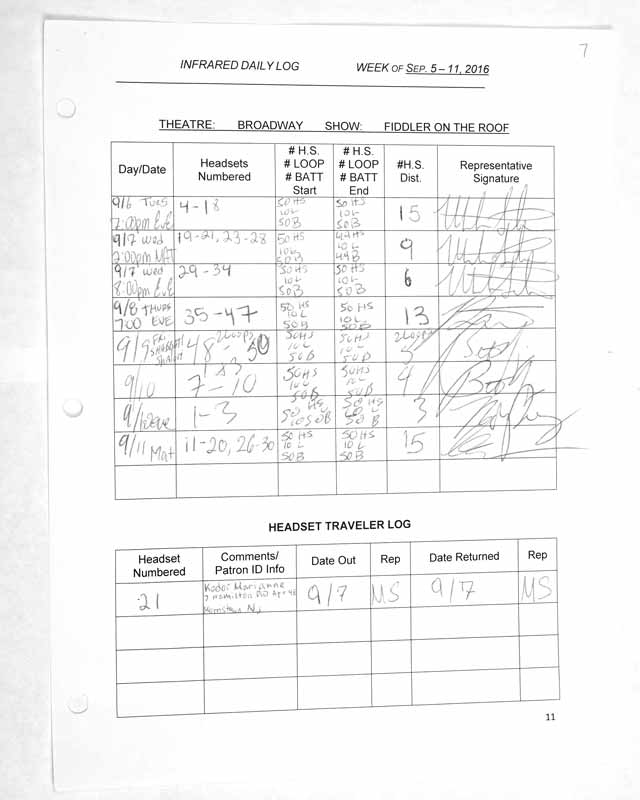 7
INFRARED DAILY LOG WEEK OF SEP. 5 – 11, 2016
THEATRE: BROADWAY SHOW: FIDDLER ON THE ROOF
Day/Date
Headsets
Numbered
# H.S.
# LOOP
# BATT
Start
# H.S.
# LOOP
# BATT
End
#H.S.
Dist.
Representative
Signature
9/6 Tues
7:00pm Eve
4-18
50 HS
10 L
50 B
50 HS
10 L
50 B
15
9/7 wed
2:00pm MAT
19-21, 23-28
50 HS
10 L
50 B
49 HS
10 L
49 B
9
9/7 wed
8:00pm Eve
29-34
50 HS
10 L
50 B
50 HS
10 L
50 B
6
9/8 THURS
7:00 EVE
35-47
50 HS
10 L
50 B
50 HS
10 L
50 B
13
9/9 FRI
SHABBAT
SHALOM
2 Loops
48-50
50 HS
10 L
50 B
50 HS
10 L
50 B
2 Loops
3
9/10
7-10
50 HS
10 L
50 B
50 HS
10 L
50 B
4
9/10 eve
1-3
50 HS
10 50 B
50 HS
10 L
50 B
3
9/11 Mat
11-20, 26-30
50 HS
10 L
50 B
50 HS
10 L
50 B
15
HEADSET TRAVELER LOG
Headset
Numbered
Comments/
Patron ID Info
Date Out
Rep
Date Returned
Rep
21
Kodoi Marianne
7 Hamilton RD Apt 4E
NJ
9/7
MS
9/7
MS
11